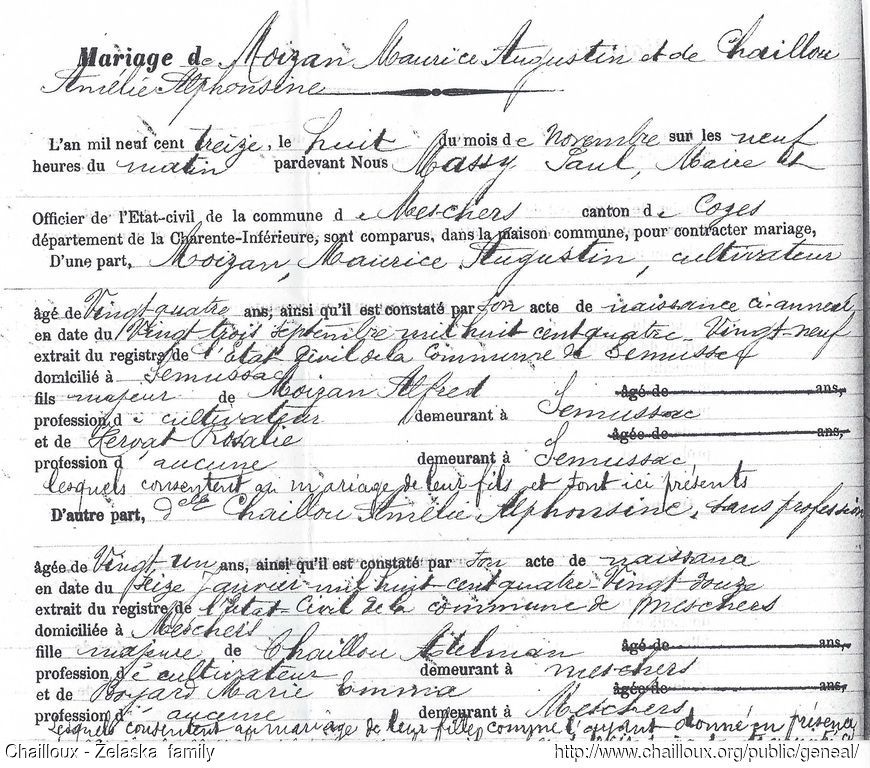 Mariage de Moizan Maurice Augustin et de Chaillou
Amélie Alphonsine
L'an mil neuf cent treize, le huit du mois de Novembre sur les neuf
heures du matin pardevant Nous Massy Paul, Maire et
Officier de l'Etat-civil de la commune de Meschers canton de Cozes
département de la Charente-Inférieure, sont comparus, dans la maison commune, pour contracter mariage,
D'une part, Moizan, Maurice Augustin, cultivateur
âgé de Vingt quatre ans, ainsi qu'il est constaté par son acte de naissance ci-annexé
en date du Vingt trois Septembre mil huit cent quatre-Vingt-neuf
extrait du registre de l'état civil de la Commune de Semussac
domicilié à Semussac
fils majeur de Moizan Alfred âgé de ans,
profession de cultivateur demeurant à Semussac
et de Hervat Rosalie âgée de ans,
profession d'aucune demeurant à Semussac
lesquels consentent au mariage de leur fils et sont ici présents
D'autre part, delle Chaillou Amélie Alphonsine, sans profession
âgée de Vingt un ans, ainsi qu'il est constaté par son acte de naissance
en date du seize Janvier mil huit cent quatre Vingt douze
extrait du registre de l'état-Civil de la commune de Meschers
domiciliée à Meschers
fille majeure de Chaillou Adelman âgé de ans,
profession de cultivateur demeurant à meschers
et de Boyard Marie Emma âgée de ans,
profession d'aucune demeurant à Meschers
Lesquels consentent au mariage de leur fille comme l'ayant donné en présence
Chailloux - Želaska family
http://www.chailloux.org/public/geneal/